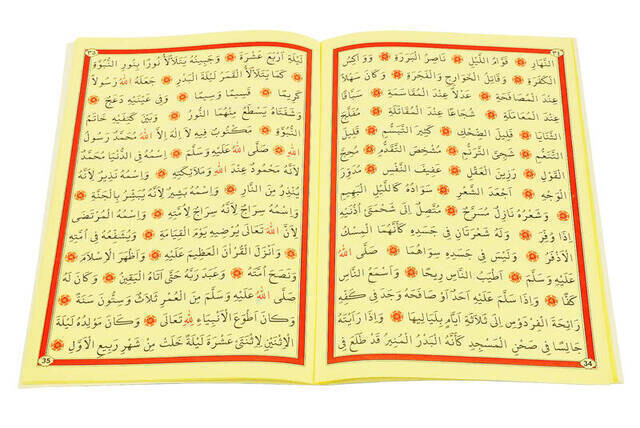 ٣٤
النَّهَارِ قَوَّامُ اللَّيْلِ نَاصِرُ الْبَرَرَةِ وَوَاكِسُ
الْكَفَرَةِ وَقَاتِلُ الْخَوَارِجِ وَالْفَجَرَةِ وَكَانَ سَهْلًا
عِنْدَ الْمُصَافَحَةِ عَدْلًا عِنْدَ الْمُقَاسَمَةِ سَبَّاقًا
عِنْدَ الْمُعَامَلَةِ شُجَاعًا عِنْدَ الْمُقَاتَلَةِ مُفَلَّجَ
الثَّنَايَا قَلِيلَ الضِّحْكِ كَثِيرَ التَّبَسُّمِ قَلِيلَ
التَّنَعُّمِ شَجِيَّ التَّرَنُّمِ مُشَخَّصَ التَّقَدُّمِ صَحِيحَ
الْقَوْلِ رَزِينَ الْعَقْلِ عَفِيفَ النَّفْسِ مُدَوَّرَ
الْوَجْهِ اَجْعَدَ الشَّعْرِ سَوَادُهُ كَاللَّيْلِ الْبَهِيمِ
وَشَعْرُهُ نَازِلٌ مُسَرَّحٌ مُتَّصِلٌ اِلَى شَحْمَتَيْ اُذُنَيْهِ
اِذَا وُفِّرَ وَلَهُ شَعْرَتَانِ فِي جَسَدِهِ كَأَنَّهُمَا الْمِسْكُ
الْاَذْفَرُ وَلَيْسَ فِي جَسَدِهِ سِوَاهُمَا صَلَّى اللهُ
عَلَيْهِ وَسَلَّمَ اَطْيَبُ النَّاسِ رِيحًا وَاَسْمَعُ النَّاسِ
كَفًّا وَاِذَا سَلَّمَ عَلَيْهِ اَحَدٌ اَوْ صَافَحَهُ وَجَدَ فِي كَفِّهِ
رَائِحَةَ الْفِرْدَوْسِ اِلَى ثَلَاثَةِ اَيَّامٍ بِلَيَالِيهَا وَاِذَا رَأَيْتَهُ
جَالِسًا فِي صَحْنِ الْمَسْجِدِ كَأَنَّهُ الْبَدْرُ الْمُنِيرُ قَدْ طَلَعَ فِي
34
٣٥
لَيْلَةِ اَرْبَعَ عَشْرَةَ وَجَبِينُهُ يَتَلَأْلَأُ نُورًا بِنُورِ النُّبُوَّةِ
كَمَا يَتَلَأْلَأُ الْقَمَرُ لَيْلَةَ الْبَدْرِ جَعَلَهُ اللهُ رَسُولًا
كَرِيمًا قَسِيمًا وَسِيمًا وَفِي عَيْنَيْهِ دَعَجٌ
وَشَفَتَاهُ يَسْطَعُ مِنْهُمَا النُّورُ وَبَيْنَ كَتِفَيْهِ خَاتَمُ
النُّبُوَّةِ مَكْتُوبٌ فِيهِ لَا اِلٰهَ اِلَّا اللهُ مُحَمَّدٌ رَسُولُ
اللهِ صَلَّى اللهُ عَلَيْهِ وَسَلَّمَ اِسْمُهُ فِي الدُّنْيَا مُحَمَّدٌ
لِأَنَّهُ مَحْمُودٌ عِنْدَ اللهِ وَمَلَائِكَتِهِ وَاِسْمُهُ نَذِيرٌ لِأَنَّهُ
يُنْذِرُ مِنَ النَّارِ وَاِسْمُهُ بَشِيرٌ لِأَنَّهُ يُبَشِّرُ بِالْجَنَّةِ
وَاِسْمُهُ سِرَاجٌ لِأَنَّهُ سِرَاجٌ لِأُمَّتِهِ وَاِسْمُهُ الْمُرْتَضَى
لِأَنَّ اللهَ تَعَالَى يُرْضِيهِ يَوْمَ الْقِيَامَةِ وَيُشَفِّعُهُ فِي اُمَّتِهِ
وَاَنْزَلَ الْقُرْآنَ الْعَظِيمَ عَلَيْهِ وَاَظْهَرَ الْاِسْلَامَ
وَنَصَحَ اُمَّتَهُ وَعَبَدَ رَبَّهُ حَتَّى اَتَاهُ الْيَقِينُ وَكَانَ لَهُ
صَلَّى اللهُ عَلَيْهِ وَسَلَّمَ مِنَ الْعُمْرِ ثَلَاثٌ وَسِتُّونَ سَنَةً
وَكَانَ اَطْوَعَ الْاَنْبِيَاءِ لِلهِ تَعَالَى وَكَانَ مَوْلِدُهُ لَيْلَةَ
الْاِثْنَيْنِ لِاِثْنَتَيْ عَشْرَةَ لَيْلَةً خَلَتْ مِنْ شَهْرِ رَبِيعِ الْاَوَّلِ
35